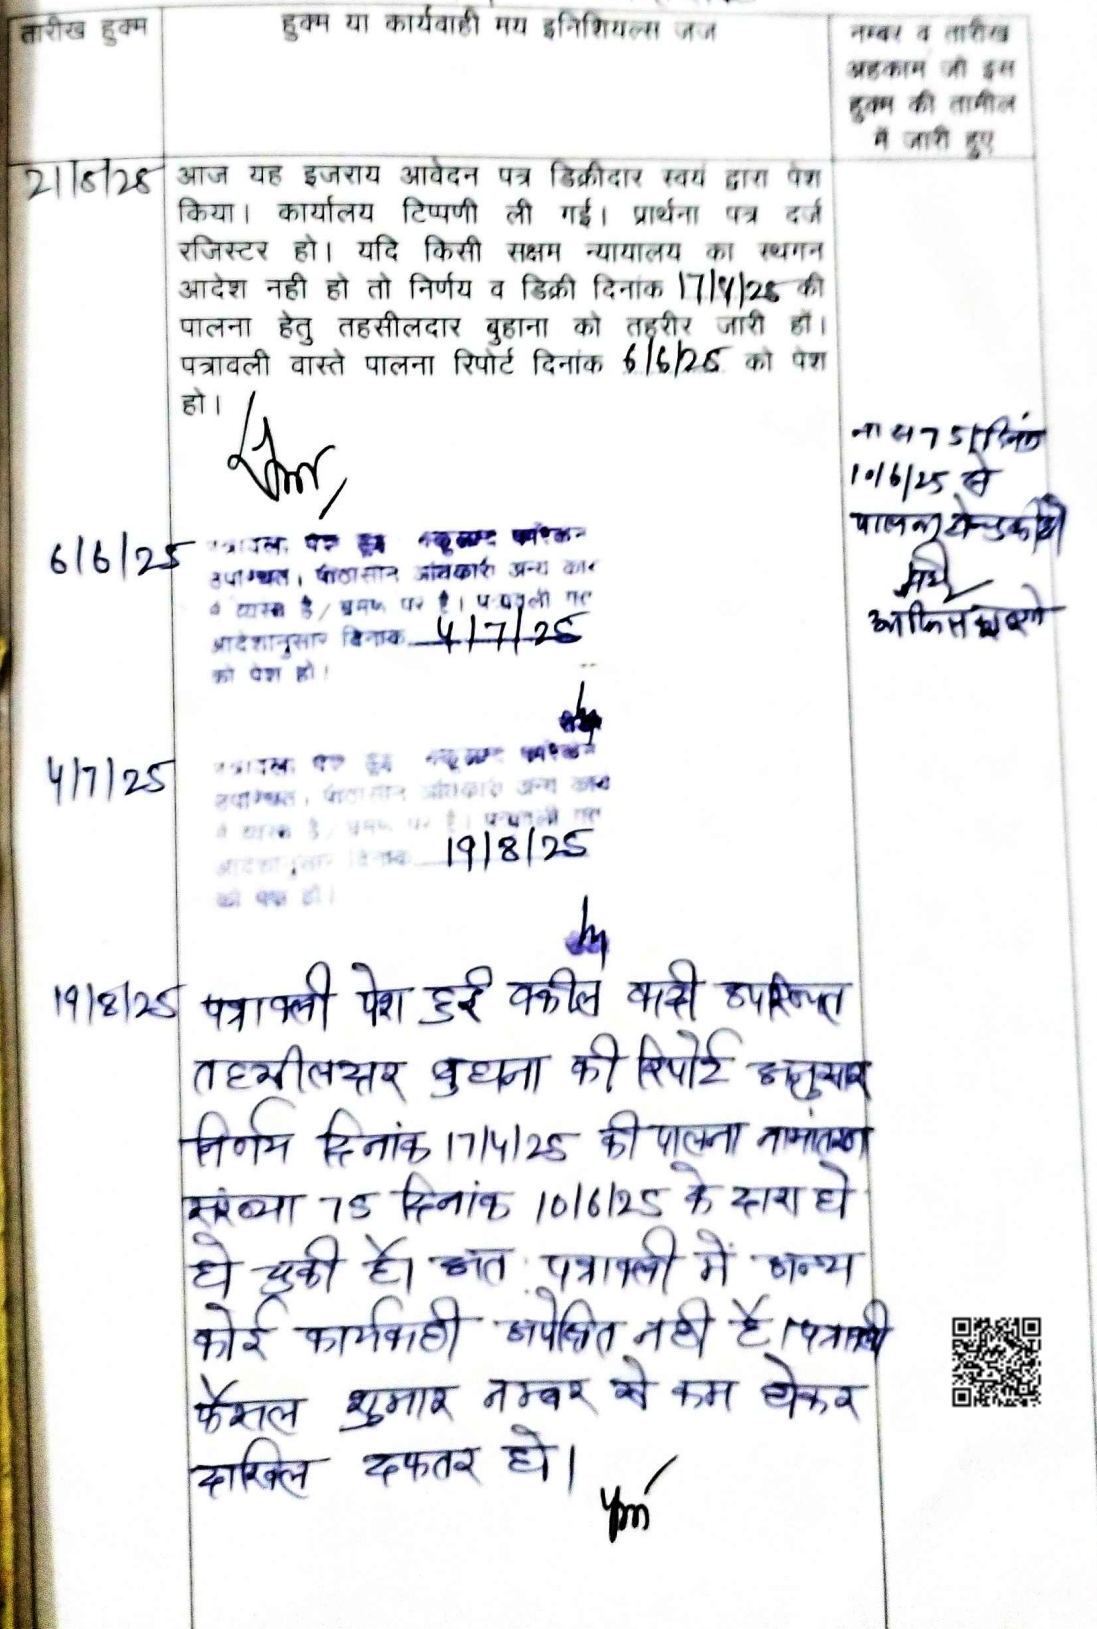 तारीख हुक्म
हुक्म या कार्यवाही मय इनिशियल्स जज
नम्बर व तारीख
अहकाम जो इस
हुक्म की तामील
में जारी हुए
21/5/25
आज यह इजराय आवेदन पत्र डिक्रीदार स्वयं द्वारा पेश
किया। कार्यालय टिप्पणी ली गई। प्रार्थना पत्र दर्ज
रजिस्टर हो। यदि किसी सक्षम न्यायालय का स्थगन
आदेश नही हो तो निर्णय व डिक्री दिनांक 17/4/25 की
पालना हेतु तहसीलदार बुहाना को तहरीर जारी हों।
पत्रावली वास्ते पालना रिपोर्ट दिनांक 6/6/25 को पेश
हो।
75 दिनांक
10/6/25 से
पालना
6/6/25
उपस्थित। पीठासीन अधिकारी अन्य कार्य
में व्यस्त है/भ्रमण पर है। पत्रावली
आदेशानुसार दिनांक 4/7/25
को पेश हो।
4/7/25
उपस्थित। पीठासीन अधिकारी अन्य कार्य
में व्यस्त है/भ्रमण पर है। पत्रावली
आदेशानुसार दिनांक 19/8/25
को पेश हो।
19/8/25
पत्रावली पेश हुई वकील वादी उपस्थित
तहसीलदार बुहाना की रिपोर्ट अनुसार
निर्णय दिनांक 17/4/25 की पालना नामांतरण
संख्या 75 दिनांक 10/6/25 के द्वारा हो
हो चुकी है। अतः पत्रावली में अन्य
कोई कार्यवाही अपेक्षित नही है। पत्रावली
फैसल शुमार नम्बर से कम होकर
दाखिल दफतर हो।